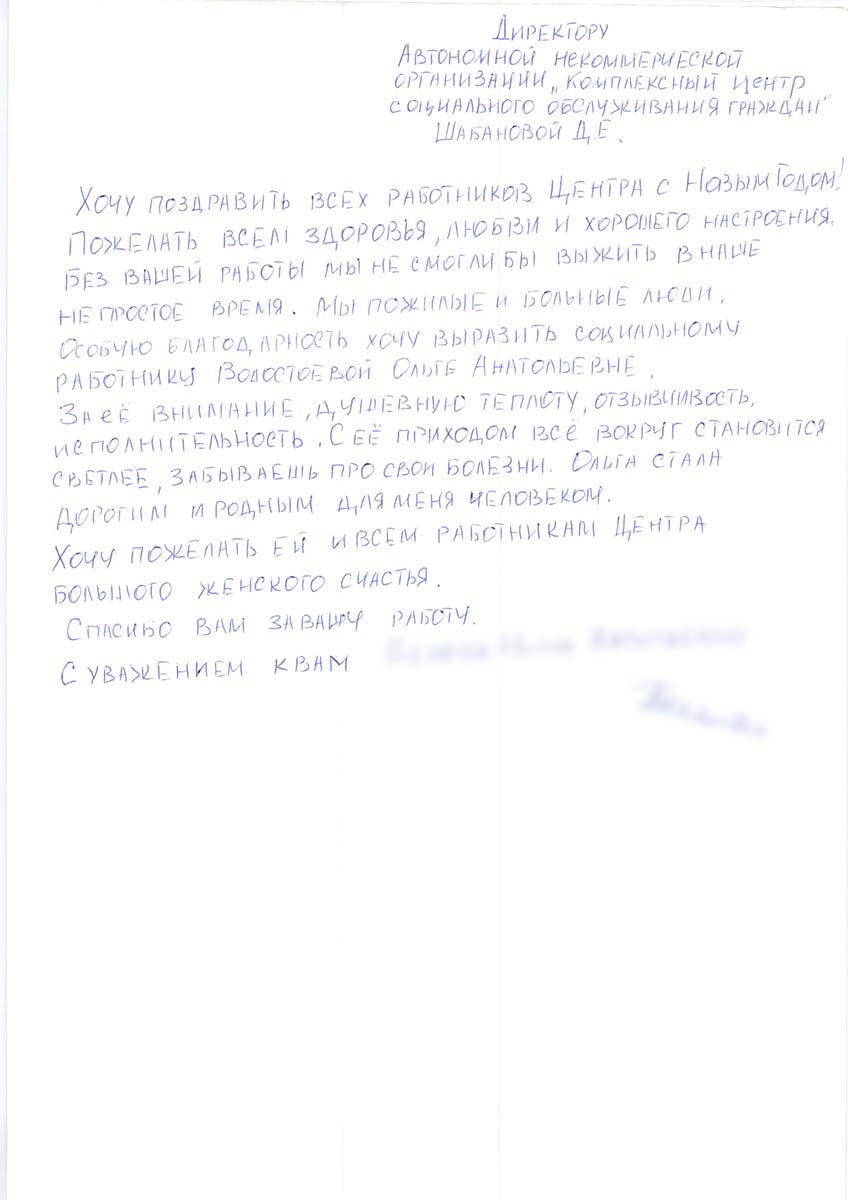 Директору
Автономной некоммерческой
организации „Комплексный центр
социального обслуживания граждан"
Шабановой Д.Е.
Хочу поздравить всех работников Центра с Новым Годом!
Пожелать всем здоровья, любви и хорошего настроения.
Без вашей работы мы не смогли бы выжить в наше
не простое время. Мы пожилые и больные люди.
Особую благодарность хочу выразить социальному
работнику Водостоевой Ольге Анатольевне.
За её внимание, душевную теплоту, отзывчивость,
исполнительность. С её приходом всё вокруг становится
светлее, забываешь про свои болезни. Ольга стала
дорогим и родным для меня человеком.
Хочу пожелать ей и всем работникам Центра
большого женского счастья.
Спасибо вам за вашу работу.
С уважением к вам